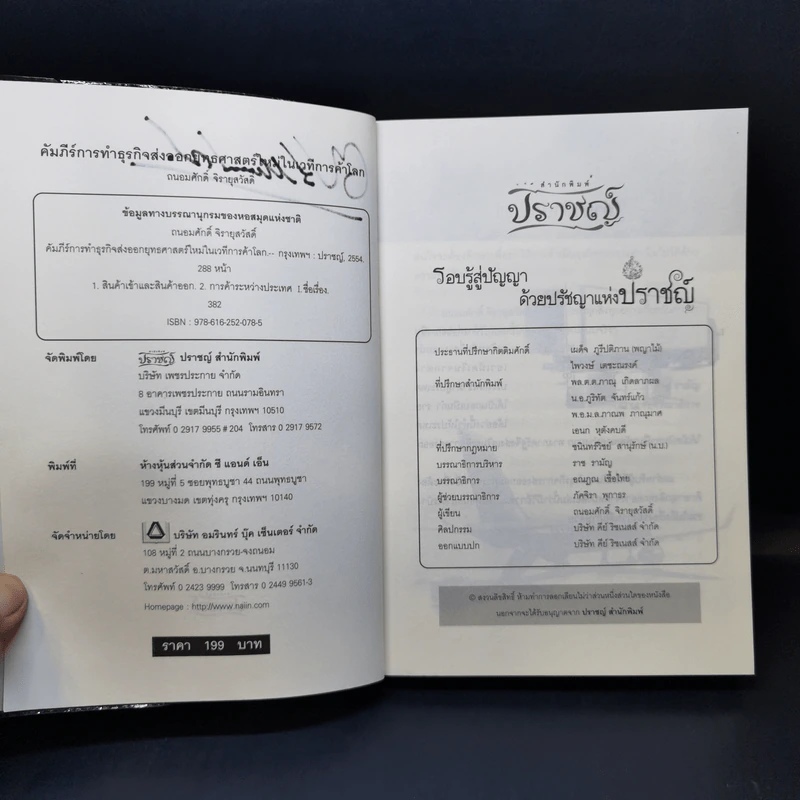 คัมภีร์การทำธุรกิจส่งออกยุทธศาสตร์ใหม่ในเวทีการค้าโลก
ถนอมศักดิ์ จิรายุสวัสดิ์
ข้อมูลทางบรรณานุกรมของหอสมุดแห่งชาติ
ถนอมศักดิ์ จิรายุสวัสดิ์
คัมภีร์การทำธุรกิจส่งออกยุทธศาสตร์ใหม่ในเวทีการค้าโลก.-- กรุงเทพฯ : ปราชญ์, 2554.
288 หน้า
1. สินค้าเข้าและสินค้าออก. 2. การค้าระหว่างประเทศ I.ชื่อเรื่อง.
382
ISBN : 978-616-252-078-5
จัดพิมพ์โดย ปราชญ์ ปราชญ์ สำนักพิมพ์
บริษัท เพชรประกาย จำกัด
8 อาคารเพชรประกาย ถนนรามอินทรา
แขวงมีนบุรี เขตมีนบุรี กรุงเทพฯ 10510
โทรศัพท์ 0 2917 9955 # 204 โทรสาร 0 2917 9572
พิมพ์ที่ ห้างหุ้นส่วนจำกัด ซี แอนด์ เอ็น
199 หมู่ที่ 5 ซอยพุทธบูชา 44 ถนนพุทธบูชา
แขวงบางมด เขตทุ่งครุ กรุงเทพฯ 10140
จัดจำหน่ายโดย บริษัท อมรินทร์ บุ๊ค เซ็นเตอร์ จำกัด
108 หมู่ที่ 2 ถนนบางกรวย-จงถนอม
ต.มหาสวัสดิ์ อ.บางกรวย จ.นนทบุรี 11130
โทรศัพท์ 0 2423 9999 โทรสาร 0 2449 9561-3
Homepage : http://www.naiin.com
ราคา 199 บาท
สำนักพิมพ์
ปราชญ์
รอบรู้สู่ปัญญา
ด้วยปรัชญาแห่งปราชญ์
ประธานที่ปรึกษากิตติมศักดิ์ เมต็จ ภูริปติภาน (พญาไม้)
ไพวงษ์ เตชะณรงค์
ที่ปรึกษาสำนักพิมพ์ พล.ต.ต.ภาณุ เกิดลาภผล
น.อ.ภูริทัต จันทร์แก้ว
พ.อ.ม.ล.ภาณพ ภาณุมาศ
เอนก หุตังคบดี
ที่ปรึกษากฎหมาย ชนินทร์วิชย์ สานุรักษ์ (น.บ.)
บรรณาธิการบริหาร ราช รามัญ
บรรณาธิการ ธณฎณ เชื้อไทย
ผู้ช่วยบรรณาธิการ ภัคจิรา พุกาธร
ผู้เขียน ถนอมศักดิ์ จิรายุสวัสดิ์
ศิลปกรรม บริษัท คีย์ ริชเนสส์ จำกัด
ออกแบบปก บริษัท คีย์ ริชเนสส์ จำกัด
© สงวนลิขสิทธิ์ ห้ามทำการลอกเลียนไม่ว่าส่วนหนึ่งส่วนใดของหนังสือ
นอกจากจะได้รับอนุญาตจาก ปราชญ์ สำนักพิมพ์